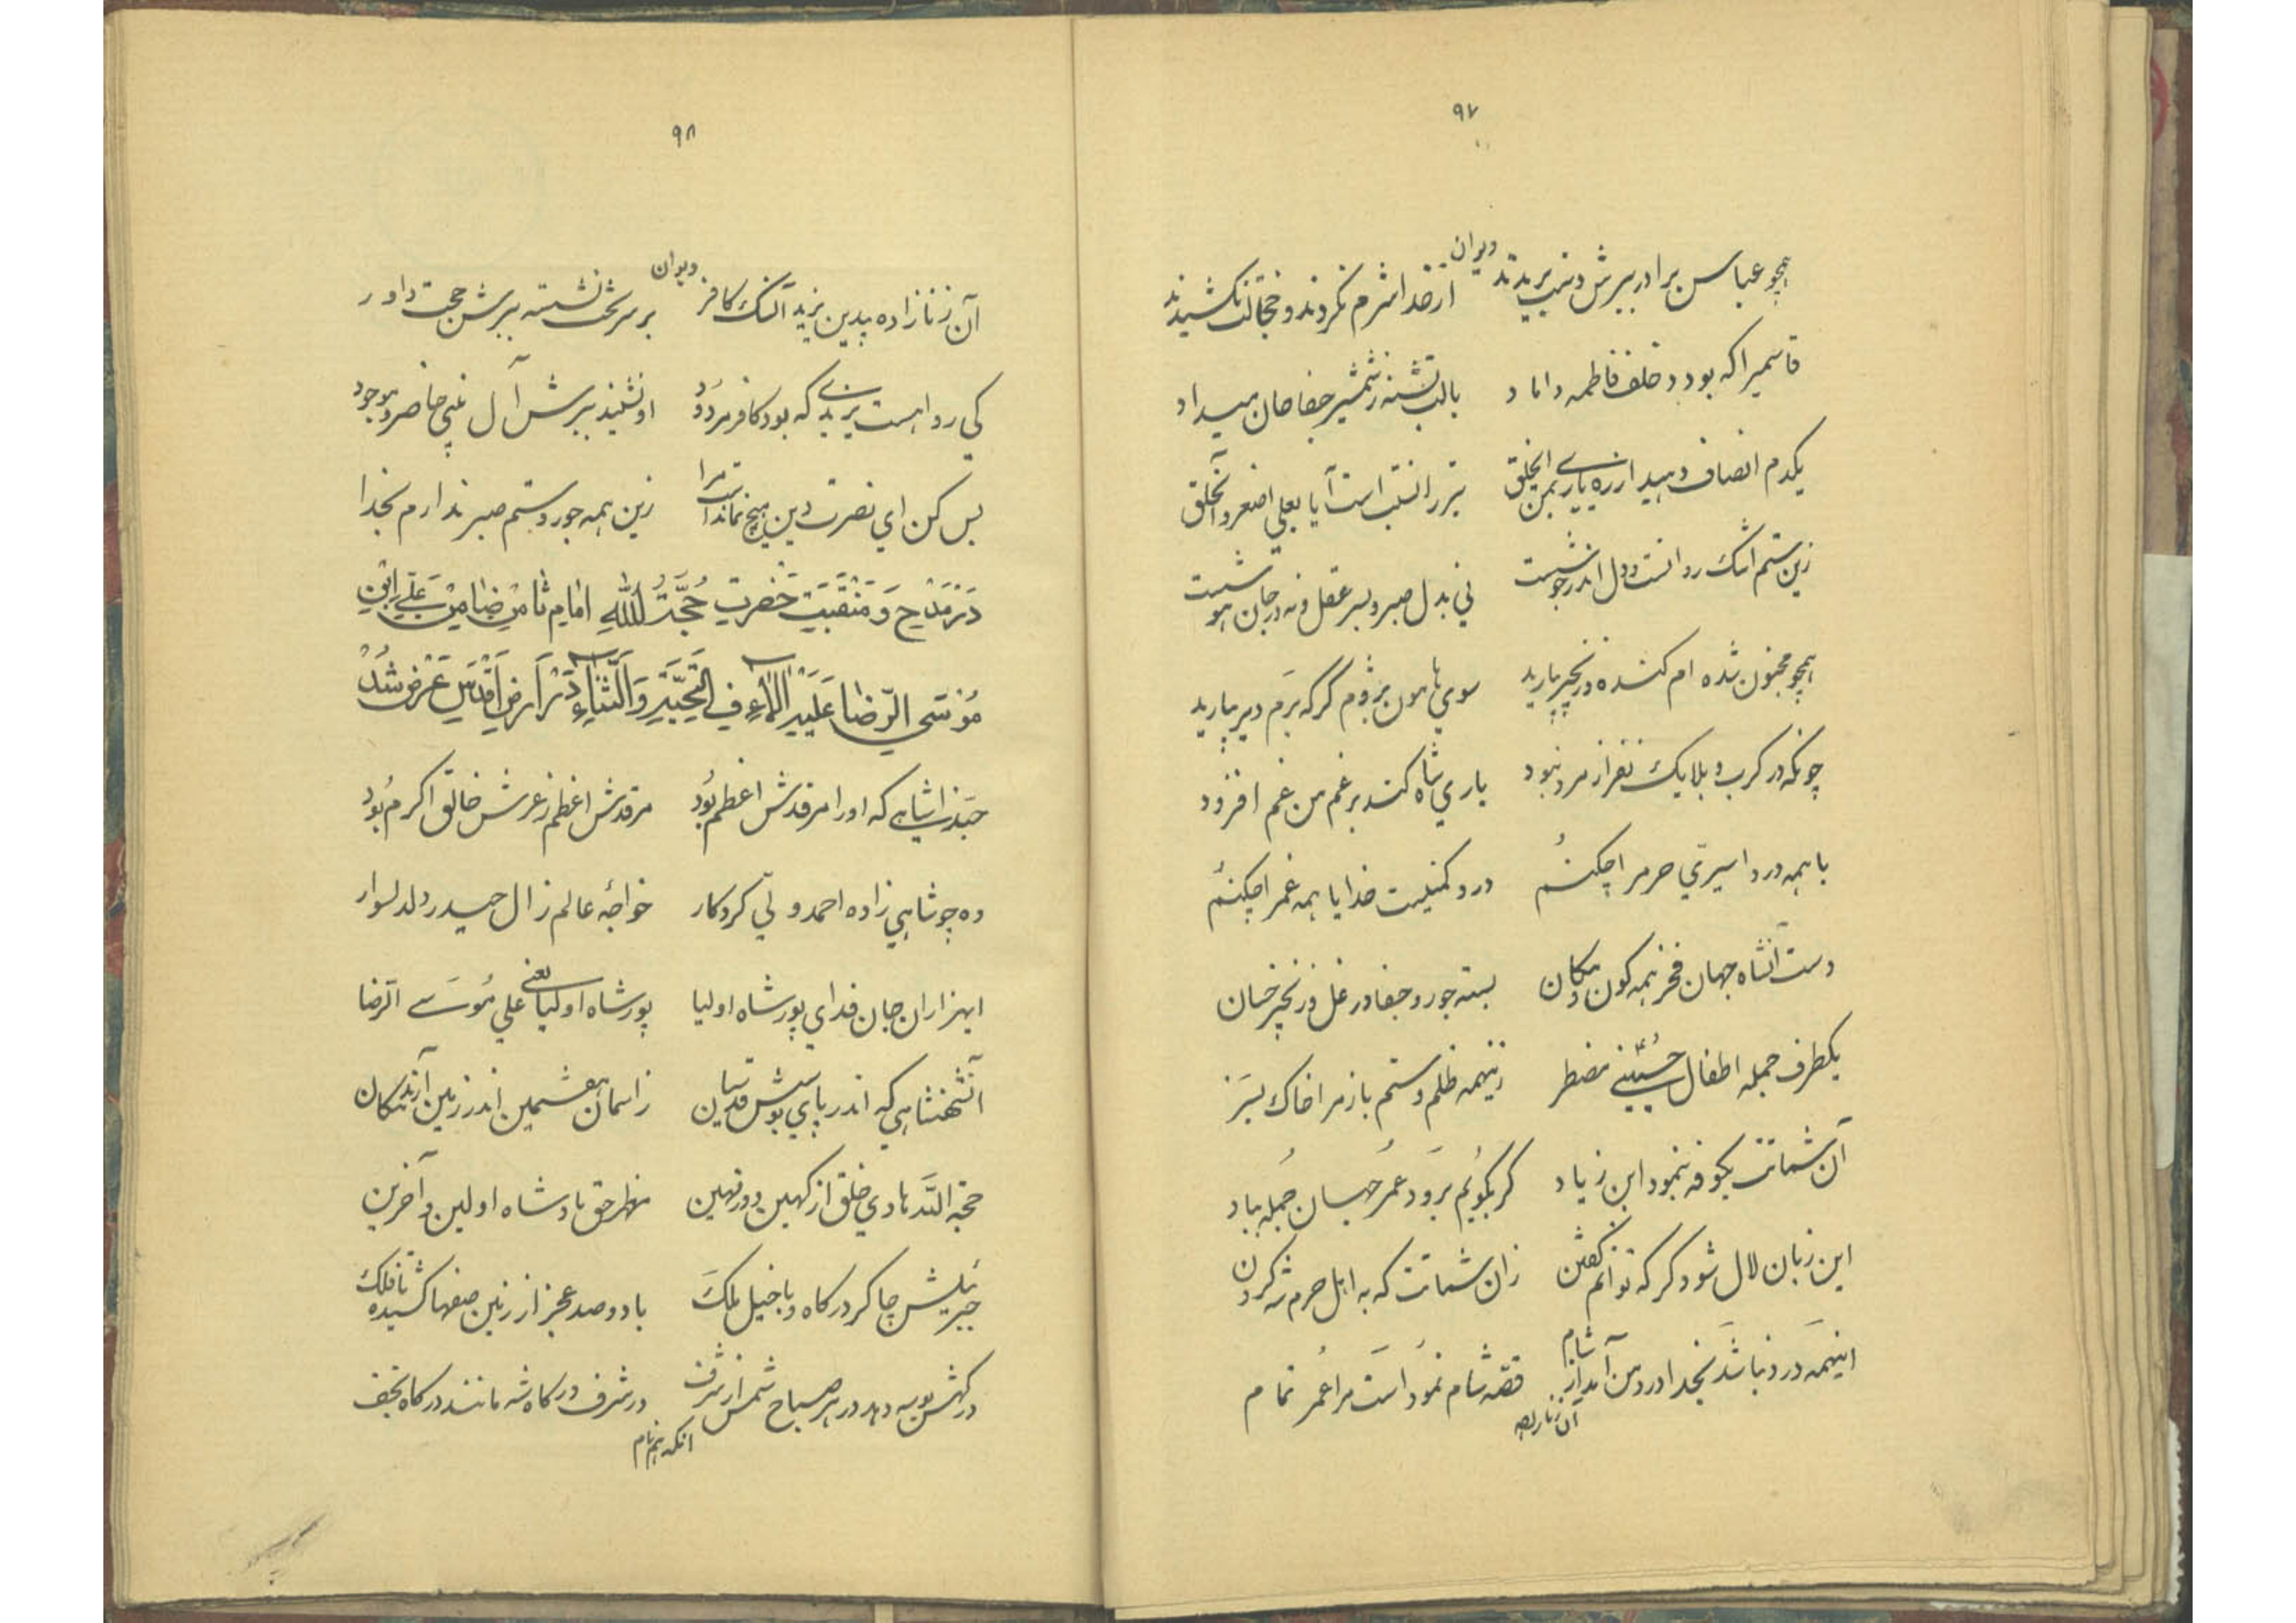 ۹۷
دیوان
همچو عباس برادر ببرش دست بریدند از خدا شرم نکردند و خجالت نکشیدند
قاسمیرا که بود و خلف فاطمه داماد بالب تشنه ز شمشیر جفا جان میداد
یکدم انصاف دهید از ره یاری بمن ایخلق تیر را نسبت است آیا بعلی اصغر و آنحلق
زین ستم اشک روانست و دل اندر جوشست نی بدل صبر و بسر عقل و نه در جان هوشست
همچو مجنون شده ام کنده و زنجیر بیارید سوی هامون بروم گر که برم دیر بیارید
چونکه در کرب و بلا یک نفر از مرد نبود یاری شاه کند بر غم من غم افزود
با همه درد اسیری حرمرا چکنم درد کم نیست خدایا همه غمرا چکنم
دست آنشاه جهان فخر همه کون و مکان بسته جور و جفا در غل و زنجیر خسان
یکطرف جمله اطفال حسینی مضطر زینهمه ظلم و ستم باز مرا خاک بسر
آن شماتت بکوفه بنمود ابن زیاد گر بگویم برود عمر جهان جمله بباد
این زبان لال شود گر که توانم گفتن زان شماتت که به اهل حرم شه کردن
اینهمه درد نباشد بخدا درد من آمد از شام قصه شام نمود است مرا عمر تمام
آن زنازاده
۹۸
دیوان
آن زنازاده بیدین یزید آن سگ کافر بر سر تخت نشسته ببرش حجت داور
کی رواهست یزیدی که بود کافر مردود او نشیند ببرش آل نبی حاضر و موجود
بس کن ای نصرت دین هیچ نماندست مرا زین همه جور و ستم صبر ندارم بخدا
در مدح و منقبت حضرت حجة الله امام ثامن ضامن علی ابن
موسی الرضا علیه الاف التحیة والثناء در ارض اقدس عرض شد
حبذا شاهی که اورا مرقدش اعظم بود مرقدش اعظم ز عرش خالق اکرم بود
وه چو شاهی زاده احمد ولی کردگار خواجه عالم ز ال حیدر دلدل سوار
ایهزاران جان فدای پور شاه اولیا پور شاه اولیا یعنی علی موسی الرضا
آنشهنشاهی که اندر پای بوسش قدسیان ز اسمان هفتمین اندر زمین آرند مکان
حجة الله هادی خلق از کهین و از مهین مظهر حق پادشاه اولین و آخرین
جبرئیلش چاکر درگاه و با خیل ملک با دو صد عجز از زمین صفها کشیده تا فلک
درگهش بوسه دهد در هر صباح شمس از شرف در شرف درگاه شه مانند درگاه نجف
آنکه هم نام